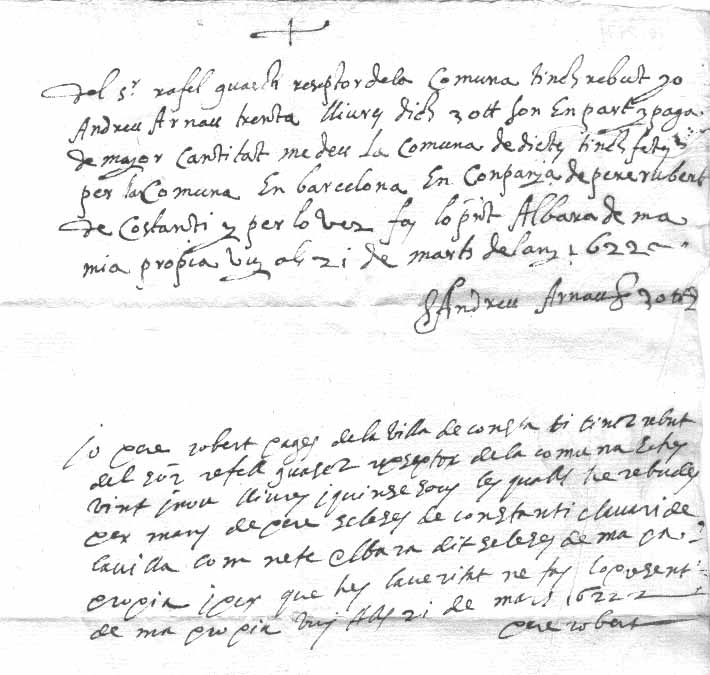 del sr rafel guasch reseptor de la Comuna tinch rebut yo
Andreu Arnau trenta lliures dich 30 ll son En part y paga
de major Cantitat me deu La Comuna de dictes tinch fetes
per la Comuna En barcelona En Conpanja de pere rubert
de Costanti y per lo ver fas lo pnt Albara de ma
mia propia vuy als 21 de marts de lany 1622
Andreu Arnau 30 ll
Jo pere robert pages de la villa de consta ti tinch rebut
del sor refell guasch reseptor de la comuna
vint i nou lliures i quinse sous les qualls he rebudes
per mans de pere de constanti clavari de
la villa com ne te albara dit de ma
propia i per que hes la veritat ne fas lo present
de ma propia vuj alls 21 de mars 1622
pere robert